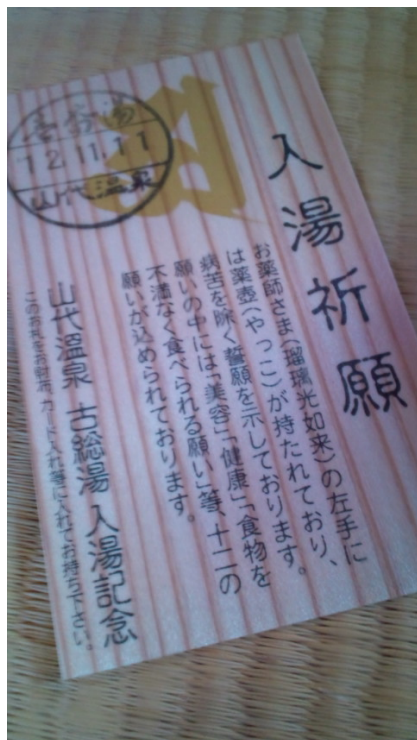 入湯祈願
お薬師さま(瑠璃光如来)の左手に
は薬壺(やっこ)が持たれており、
病苦を除く誓願を示しております。
願いの中には、「美容」「健康」「食物を
不満なく食べられる願い」等、十二の
願いが込められております。
山代温泉 古総湯 入湯記念
このお札をお財布、カード入れ等に入れてお持ち下さい。
12.11.11
山代温泉